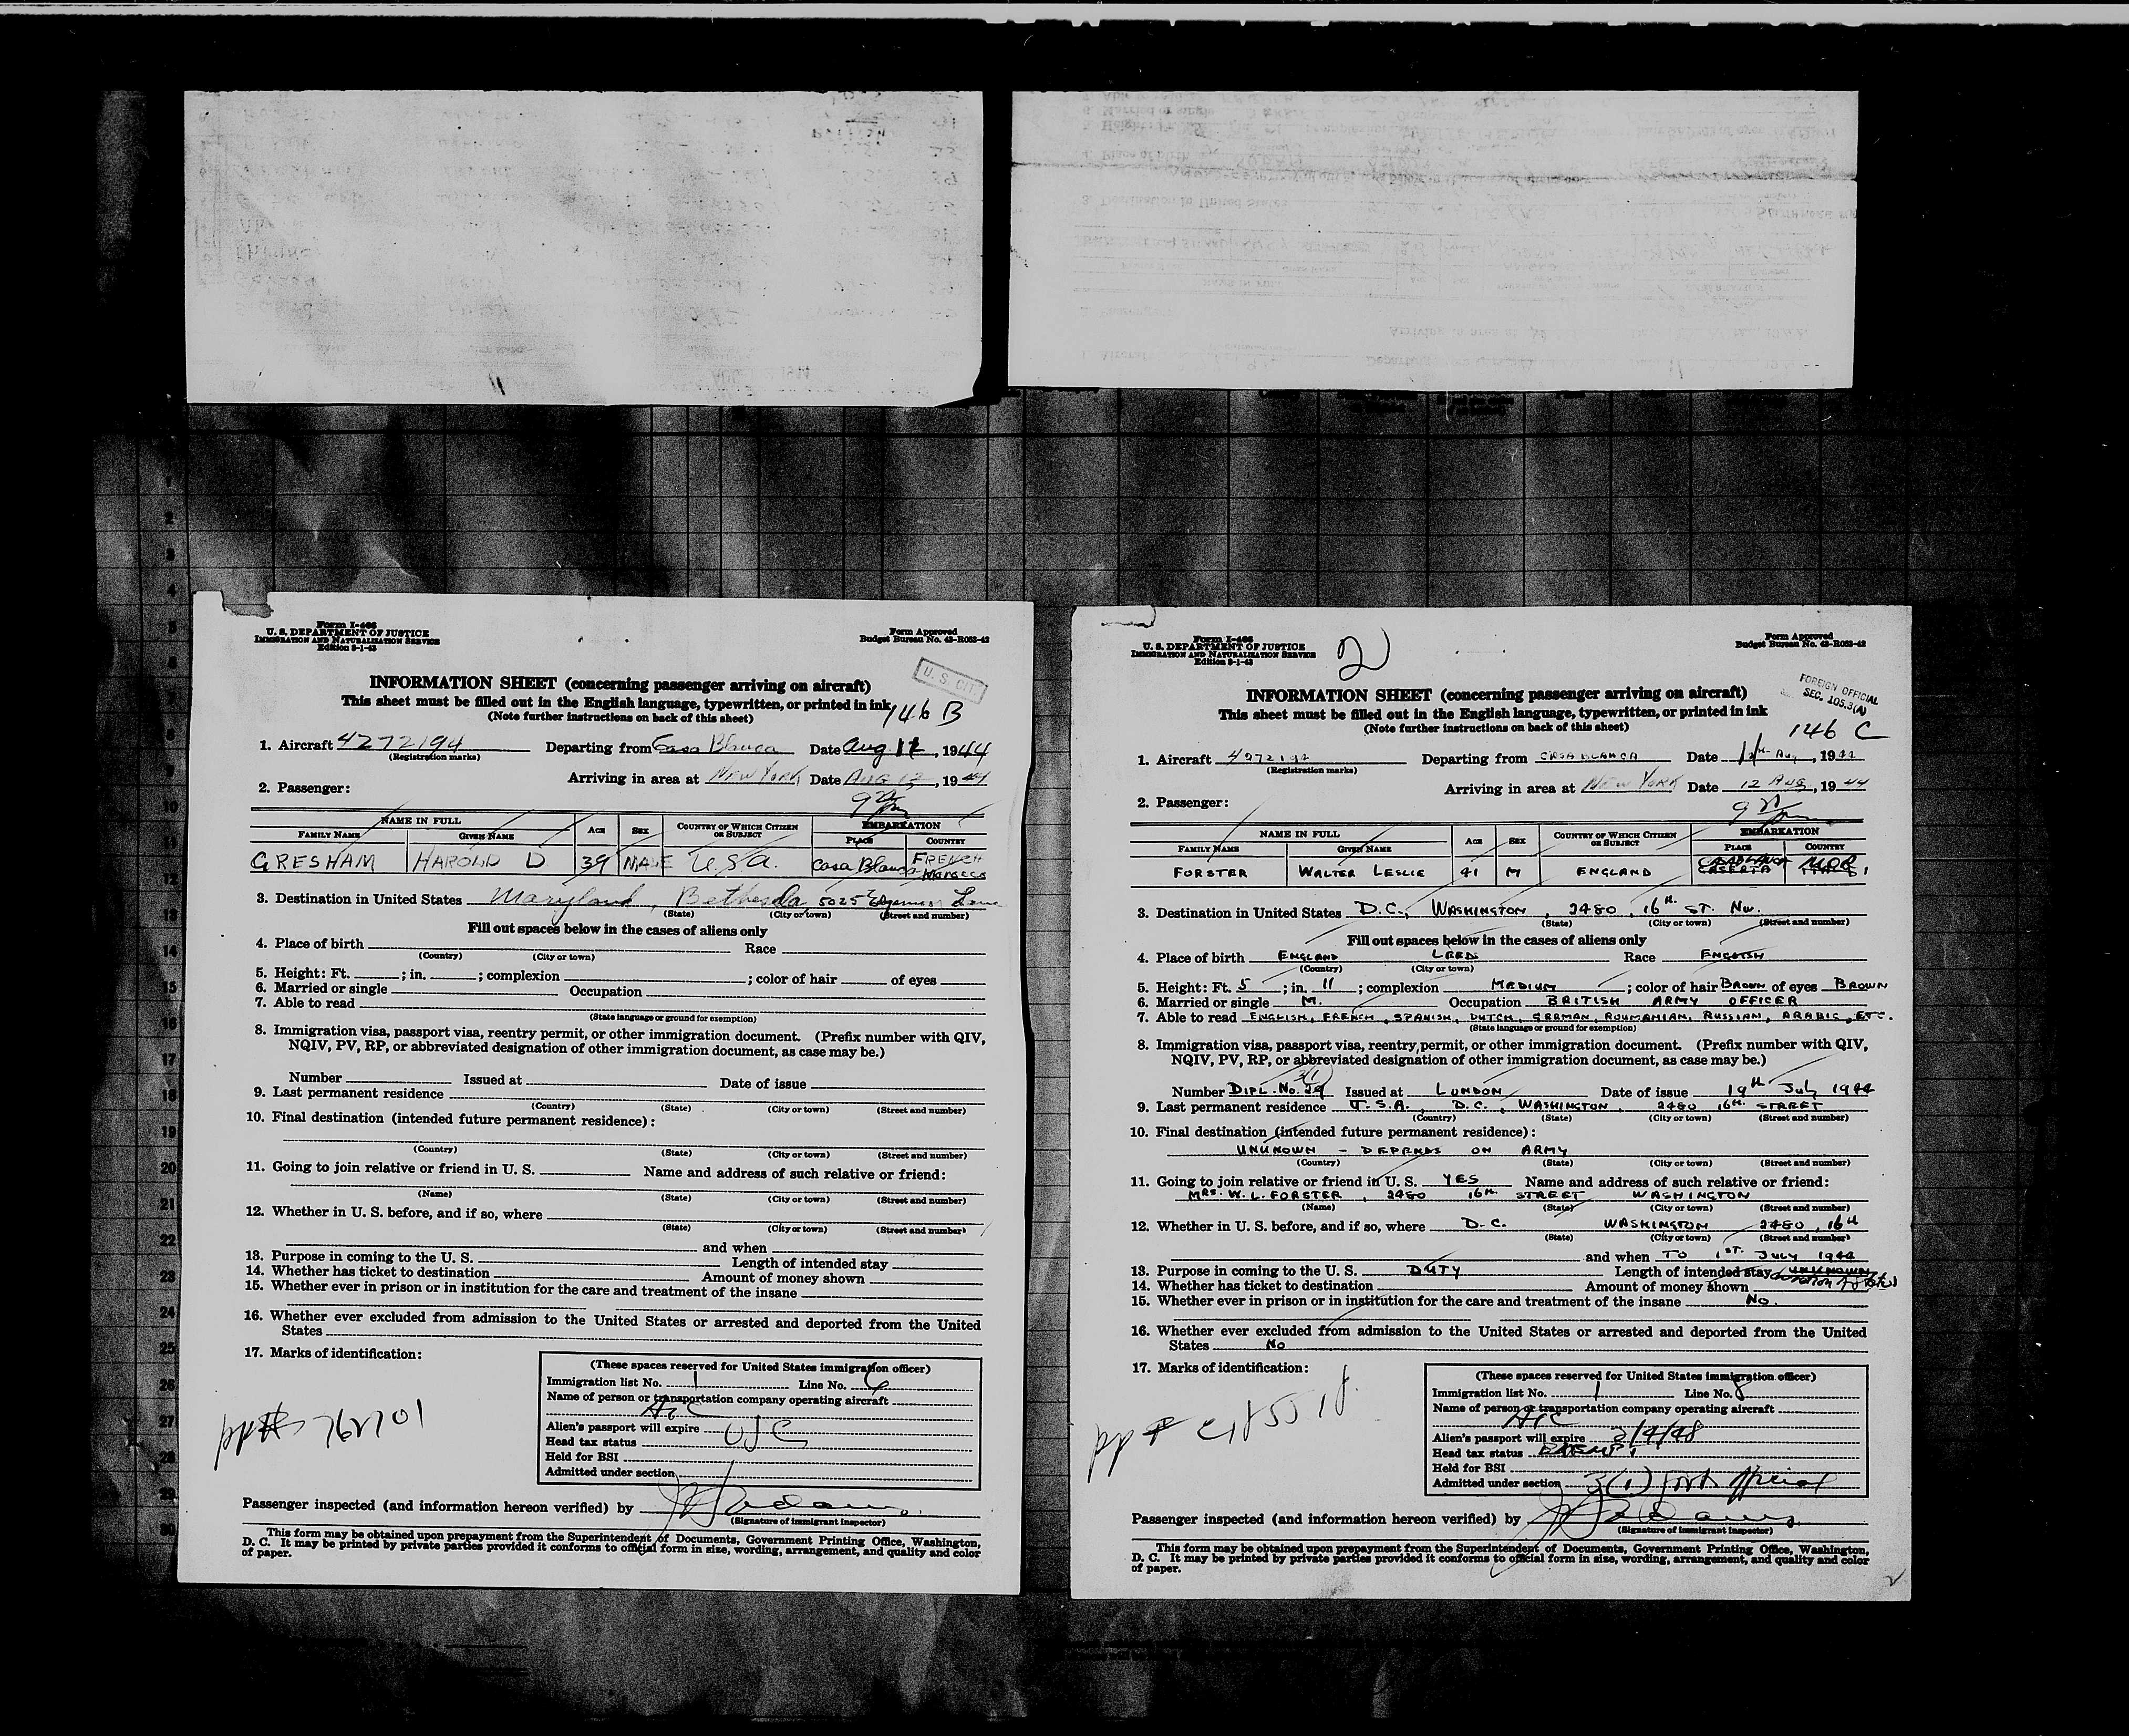 Form I-466
U. S. DEPARTMENT OF JUSTICE
IMMIGRATION AND NATURALIZATION SERVICE
Edition 8-1-43
Form Approved
Budget Bureau No. 43-R063-42
U. S. CIT.
INFORMATION SHEET (concerning passenger arriving on aircraft)
This sheet must be filled out in the English language, typewritten, or printed in ink
(Note further instructions on back of this sheet)
146 B
1. Aircraft 4272194 Departing from Casa Blanca Date Aug. 12, 1944
(Registration marks)
Arriving in area at New York Date Aug 12, 1944
2. Passenger:
NAME IN FULL
AGE SEX COUNTRY OF WHICH CITIZEN OR SUBJECT EMBARKATION
FAMILY NAME GIVEN NAME PLACE COUNTRY
GRESHAM HAROLD D 39 MALE U.S.A. Casa Blanca FRENCH MOROCCO
3. Destination in United States Maryland, Bethesda, 5025 Lane
(State) (City or town) (Street and number)
Fill out spaces below in the cases of aliens only
4. Place of birth Race
(Country) (City or town)
5. Height: Ft. ; in. ; complexion ; color of hair of eyes
6. Married or single Occupation
7. Able to read
(State language or ground for exemption)
8. Immigration visa, passport visa, reentry permit, or other immigration document. (Prefix number with QIV,
NQIV, PV, RP, or abbreviated designation of other immigration document, as case may be.)
Number Issued at Date of issue
9. Last permanent residence
(Country) (State) (City or town) (Street and number)
10. Final destination (intended future permanent residence):
(Country) (State) (City or town) (Street and number)
11. Going to join relative or friend in U. S. Name and address of such relative or friend:
(Name) (State) (City or town) (Street and number)
12. Whether in U. S. before, and if so, where
(State) (City or town) (Street and number)
and when
13. Purpose in coming to the U. S. Length of intended stay
14. Whether has ticket to destination Amount of money shown
15. Whether ever in prison or in institution for the care and treatment of the insane
16. Whether ever excluded from admission to the United States or arrested and deported from the United
States
17. Marks of identification:
(These spaces reserved for United States immigration officer)
Immigration list No. 1 Line No. 6
Name of person or transportation company operating aircraft
Alien's passport will expire USC
Head tax status
Held for BSI
Admitted under section
Passenger inspected (and information hereon verified) by
(Signature of immigrant inspector)
This form may be obtained upon prepayment from the Superintendent of Documents, Government Printing Office, Washington,
D. C. It may be printed by private parties provided it conforms to official form in size, wording, arrangement, and quality and color
of paper.
Form I-466
U. S. DEPARTMENT OF JUSTICE
IMMIGRATION AND NATURALIZATION SERVICE
Edition 8-1-43
2
Form Approved
Budget Bureau No. 43-R063-42
FOREIGN OFFICIAL
SEC. 105.3(A)
INFORMATION SHEET (concerning passenger arriving on aircraft)
This sheet must be filled out in the English language, typewritten, or printed in ink
(Note further instructions on back of this sheet)
146 C
1. Aircraft 4272194 Departing from CASABLANCA Date Aug, 1944
(Registration marks)
Arriving in area at New York Date 12 AUG, 1944
2. Passenger:
NAME IN FULL
AGE SEX COUNTRY OF WHICH CITIZEN OR SUBJECT EMBARKATION
FAMILY NAME GIVEN NAME PLACE COUNTRY
FORSTER WALTER LESLIE 41 M ENGLAND
3. Destination in United States D.C., WASHINGTON, 2480, 16TH ST. NW.
(State) (City or town) (Street and number)
Fill out spaces below in the cases of aliens only
4. Place of birth ENGLAND LEEDS Race ENGLISH
(Country) (City or town)
5. Height: Ft. 5 ; in. 11 ; complexion MEDIUM ; color of hair BROWN of eyes BROWN
6. Married or single M. Occupation BRITISH ARMY OFFICER
7. Able to read ENGLISH, FRENCH, SPANISH, DUTCH, GERMAN, ROUMANIAN, RUSSIAN, ARABIC, ETC.
(State language or ground for exemption)
8. Immigration visa, passport visa, reentry permit, or other immigration document. (Prefix number with QIV,
NQIV, PV, RP, or abbreviated designation of other immigration document, as case may be.)
3(1)
Number DIPL. No. 29 Issued at LONDON Date of issue 19th July 1944
9. Last permanent residence U.S.A. D.C., WASHINGTON, 2480 16TH STREET
(Country) (State) (City or town) (Street and number)
10. Final destination (intended future permanent residence):
UNKNOWN - DEPENDS ON ARMY
(Country) (State) (City or town) (Street and number)
11. Going to join relative or friend in U. S. YES Name and address of such relative or friend:
MRS. W. L. FORSTER, 2480 16TH STREET WASHINGTON
(Name) (State) (City or town) (Street and number)
12. Whether in U. S. before, and if so, where D.C. WASHINGTON 2480, 16TH
(State) (City or town) (Street and number)
and when TO 1ST. JULY 1944
13. Purpose in coming to the U. S. DUTY Length of intended stay UNKNOWN
14. Whether has ticket to destination Amount of money shown
15. Whether ever in prison or in institution for the care and treatment of the insane No.
16. Whether ever excluded from admission to the United States or arrested and deported from the United
States No
17. Marks of identification:
(These spaces reserved for United States immigration officer)
Immigration list No. 1 Line No. 8
Name of person or transportation company operating aircraft
Alien's passport will expire 2/4/48
Head tax status EXEMPT
Held for BSI
Admitted under section 3(1) Official
Passenger inspected (and information hereon verified) by
(Signature of immigrant inspector)
This form may be obtained upon prepayment from the Superintendent of Documents, Government Printing Office, Washington,
D. C. It may be printed by private parties provided it conforms to official form in size, wording, arrangement, and quality and color
of paper.